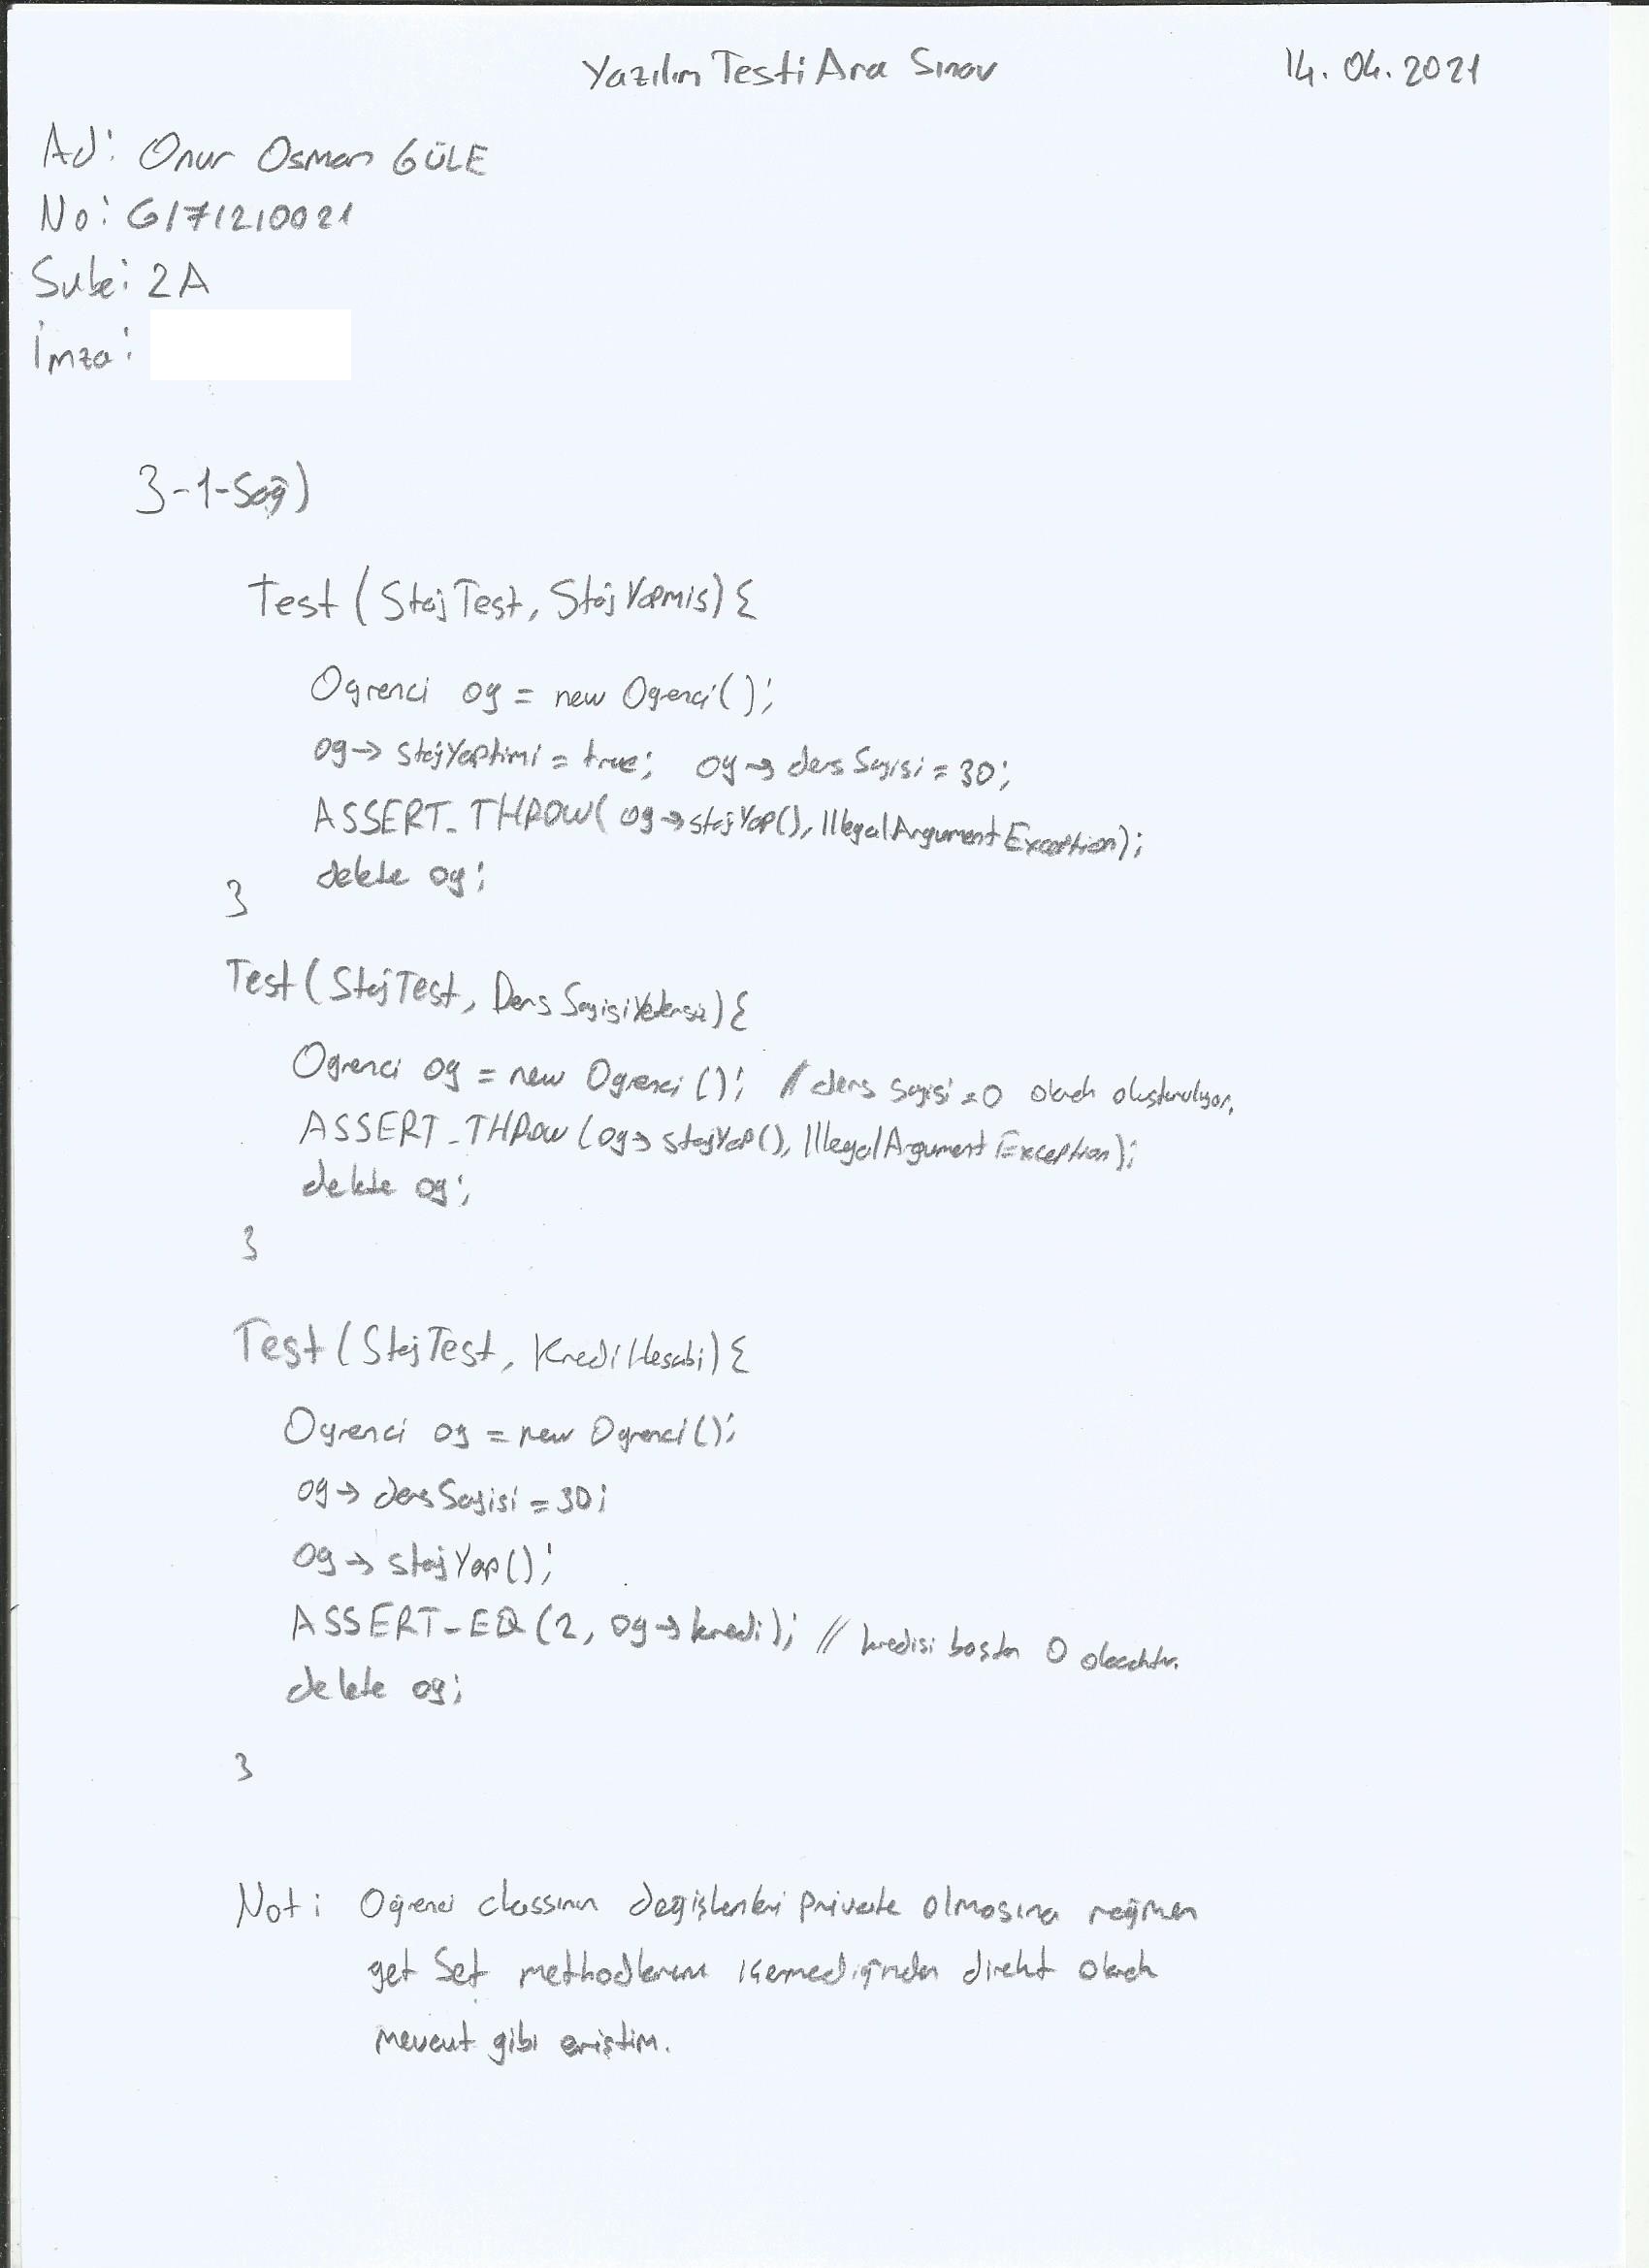 Yazılım Testi Ara Sınav 14.04.2021
Ad: Onur Osman GÜLE
No: G171210021
Şube: 2A
İmza:
3-1-Sağ)
Test (StajTest, StajYapmis) {
Ogrenci og = new Ogrenci();
og-> stajYaptimi = true; og-> dersSayisi = 30;
ASSERT_THROW( og->stajYap(), IllegalArgumentException);
delete og;
}
Test (StajTest, DersSayisiYetersiz) {
Ogrenci og = new Ogrenci (); // ders sayisi = 0 olarak olusturuluyor.
ASSERT_THROW (og-> stajYap(), IllegalArgumentException);
delete og;
}
Test (StajTest, KrediHesabi) {
Ogrenci og = new Ogrenci();
og-> dersSayisi = 30;
og-> stajYap();
ASSERT_EQ (2, og->kredi); // kredisi basta 0 olacaktır.
delete og;
}
Not: Öğrenci classının değişkenleri private olmasına rağmen
get Set methodlarını içermediğinden direkt olarak
mevcut gibi eriştim.